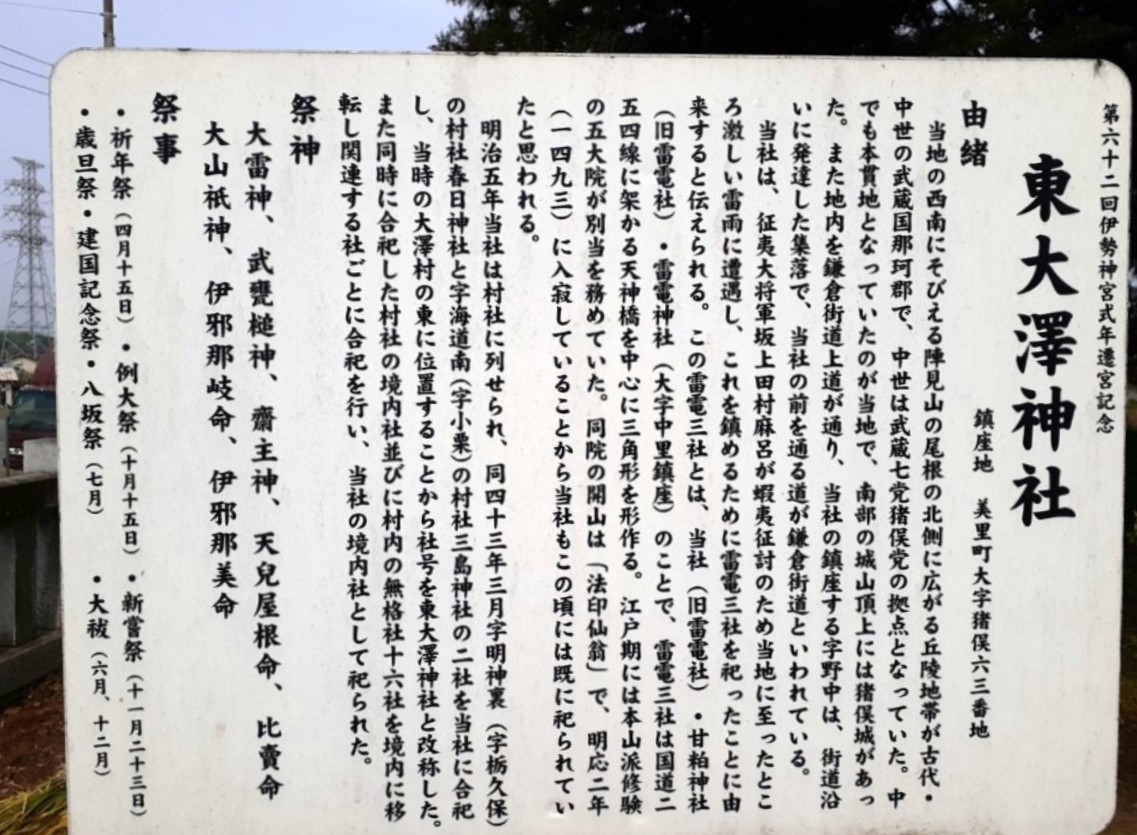 第六十二回伊勢神宮式年遷宮記念
東大澤神社
鎮座地　美里町大字猪俣六三番地
由緒
当地の西南にそびえる陣見山の尾根の北側に広がる丘陵地帯が古代・
中世の武蔵国那珂郡で、中世は武蔵七党猪俣党の拠点となっていた。中
でも本貫地となっていたのが当地で、南部の城山頂上には猪俣城があっ
た。また地内を鎌倉街道上道が通り、当社の鎮座する字野中は、街道沿
いに発達した集落で、当社の前を通る道が鎌倉街道といわれている。
当社は、征夷大将軍坂上田村麻呂が蝦夷征討のため当地に至ったとこ
ろ激しい雷雨に遭遇し、これを鎮めるために雷電三社を祀ったことに由
来すると伝えられる。この雷電三社とは、当社（旧雷電社）・甘粕神社
（旧雷電社）・雷電神社（大字中里鎮座）のことで、雷電三社は国道二
五四線に架かる天神橋を中心に三角形を形作る。江戸期には本山派修験
の五大院が別当を務めていた。同院の開山は「法印仙翁」で、明応二年
（一四九三）に入寂していることから当社もこの頃には既に祀られてい
たと思われる。
明治五年当社は村社に列せられ、同四十三年三月字明神裏（字栃久保）
の村社春日神社と字海道南（字小栗）の村社三島神社の二社を当社に合祀
し、当時の大澤村の東に位置することから社号を東大澤神社と改称した。
また同時に合祀した村社の境内社並びに村内の無格社十六社を境内に移
転し関連する社ごとに合祀を行い、当社の境内社として祀られた。
祭神
大雷神、武甕槌神、齋主神、天兒屋根命、比賣命
大山祇神、伊邪那岐命、伊邪那美命
祭事
・祈年祭（四月十五日）・例大祭（十月十五日）・新嘗祭（十一月二十三日）
・歳旦祭・建国記念祭・八坂祭（七月）　・大祓（六月、十二月）